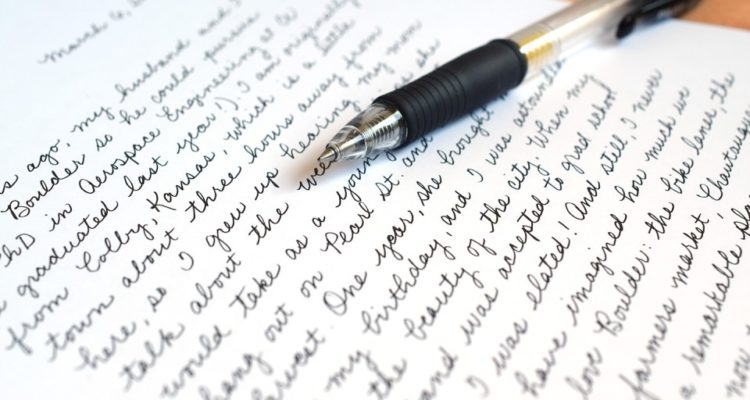 March 6,
ago, my husband and
Boulder so he could pursue
PhD in Aerospace Engineering at
graduated last year!) I am originally
from Colby, Kansas, which is a little
town about three hours away from
here, so I grew up hearing my mom
talk about the she
would take as a young
hang out on Pearl St. and
One year, she brought
my birthday, and I was
the beauty of the city. When my
and was accepted to grad school
I was elated! And still, I never
have imagined how much we
love Boulder: the bike lanes, the
farmers market,
a remarkable
now